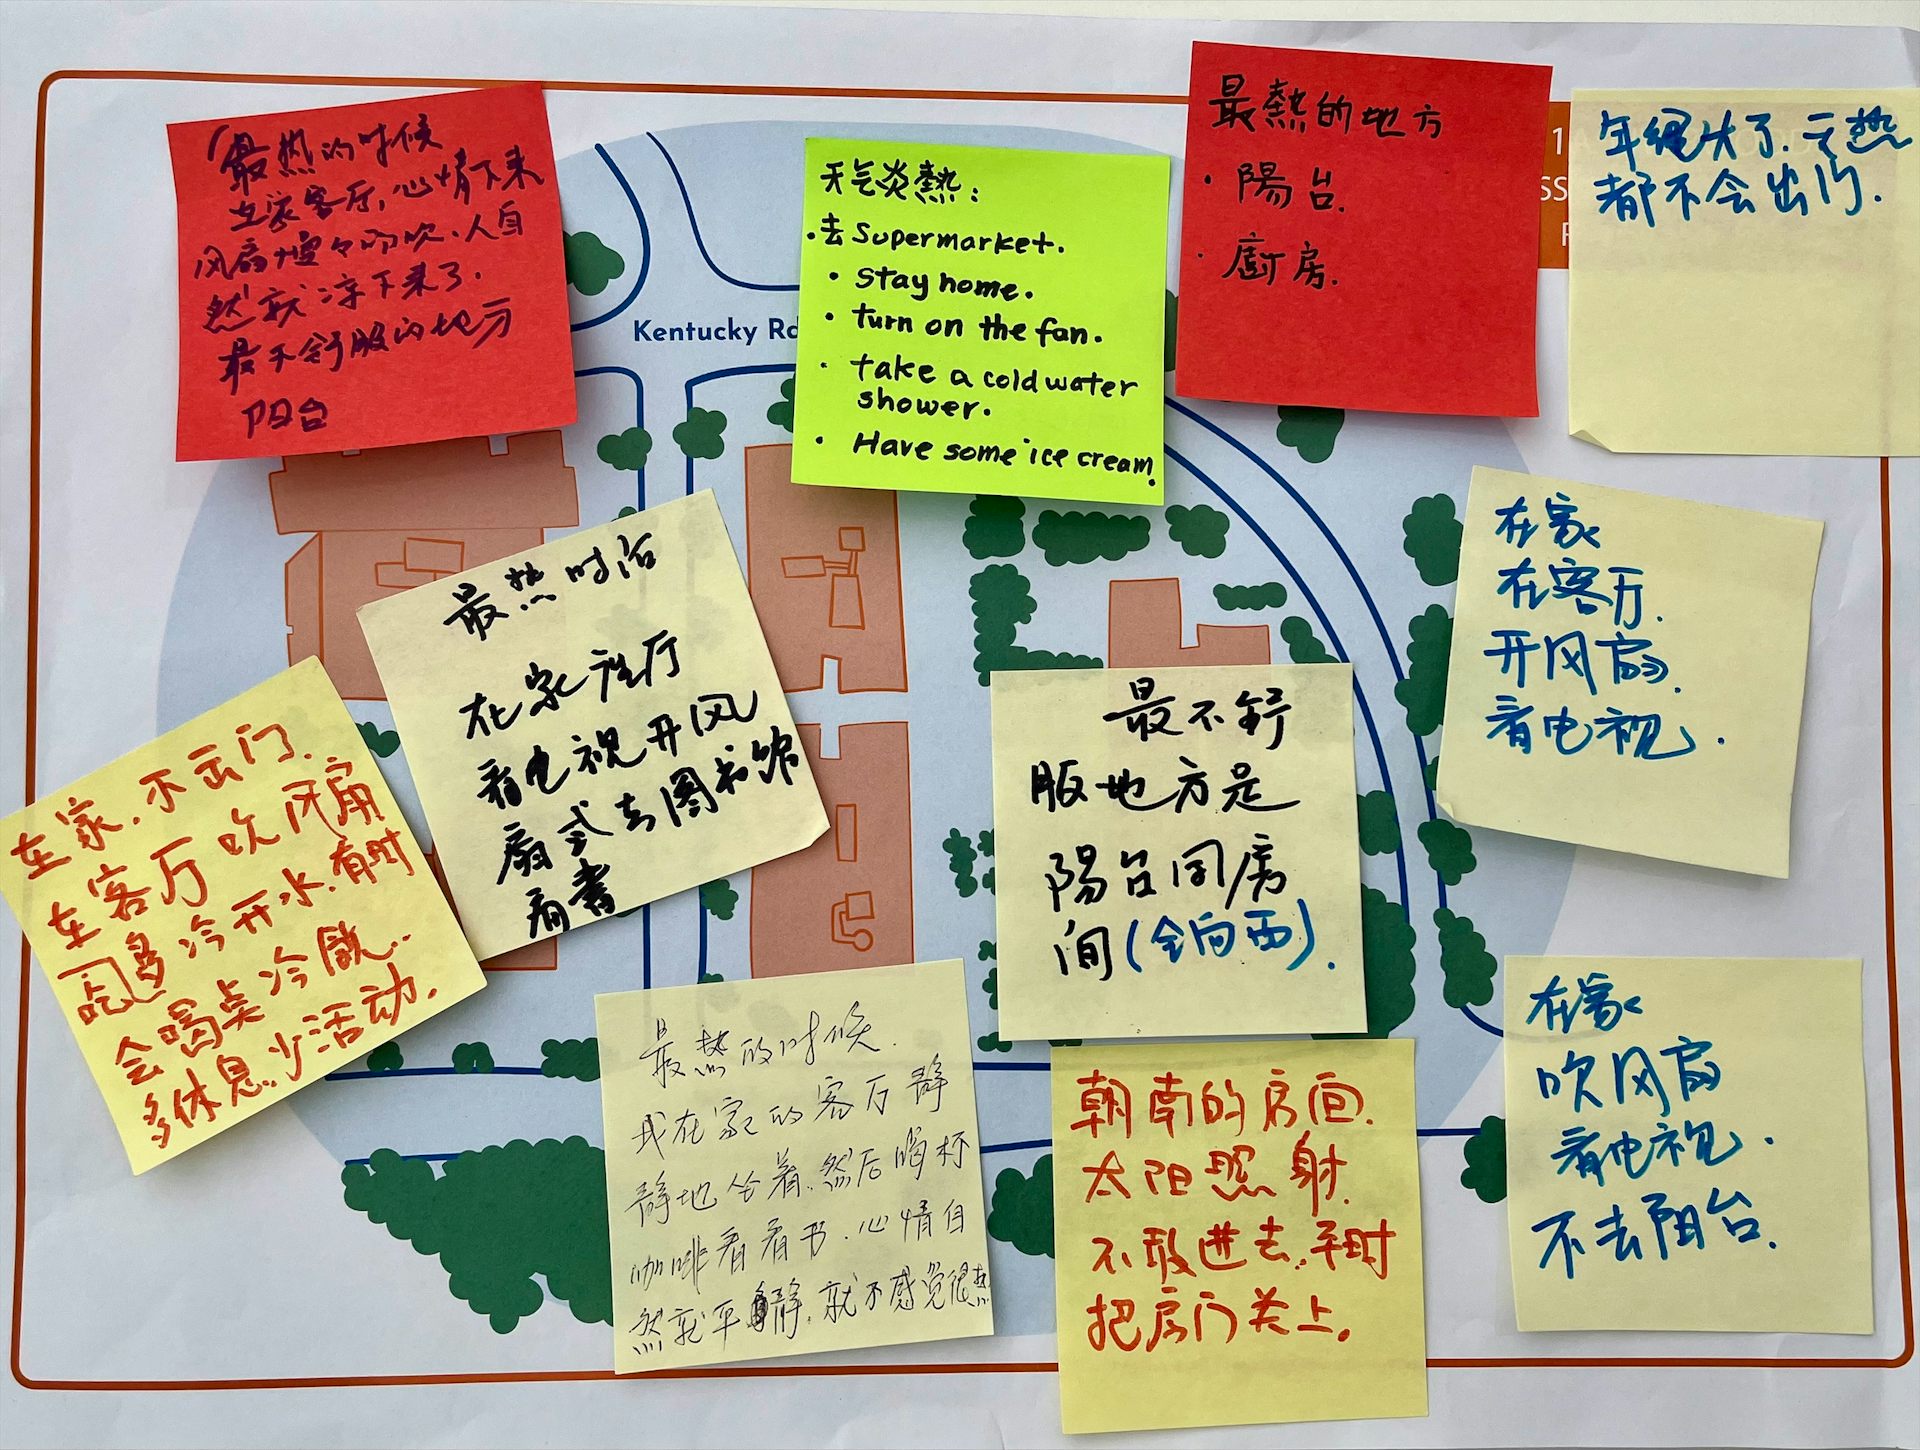 最热的时候
在家客厅,心情下来
风扇慢々吹吹.人自
然就凉下来了.
最不舒服的地方
阳台
Kentucky Rd
天气炎熱:
·去 Supermarket.
· Stay home.
· turn on the fan.
· take a cold water
shower.
· Have some ice cream.
最熱的地方
· 陽台.
· 廚房.
年纪大了.天热
都不会出门.
在家
在客厅.
开风扇.
看电视.
最热时活
在家客厅
看电视开风
扇或去图书馆
看書
在家.不出门.
在客厅吹风扇
吃多冷开水.有时
会喝点冷饮.
多休息.少活动.
最不舒
服地方是
陽台同房
间(全向西).
最热的时候.
我在家的客厅静
静地坐着.然后喝杯
咖啡看看书.心情自
然就平静.就不感觉很热
朝南的房间.
太阳照射.
不敢进去.平时
把房门关上.
在家
吹风扇
看电视.
不去阳台.